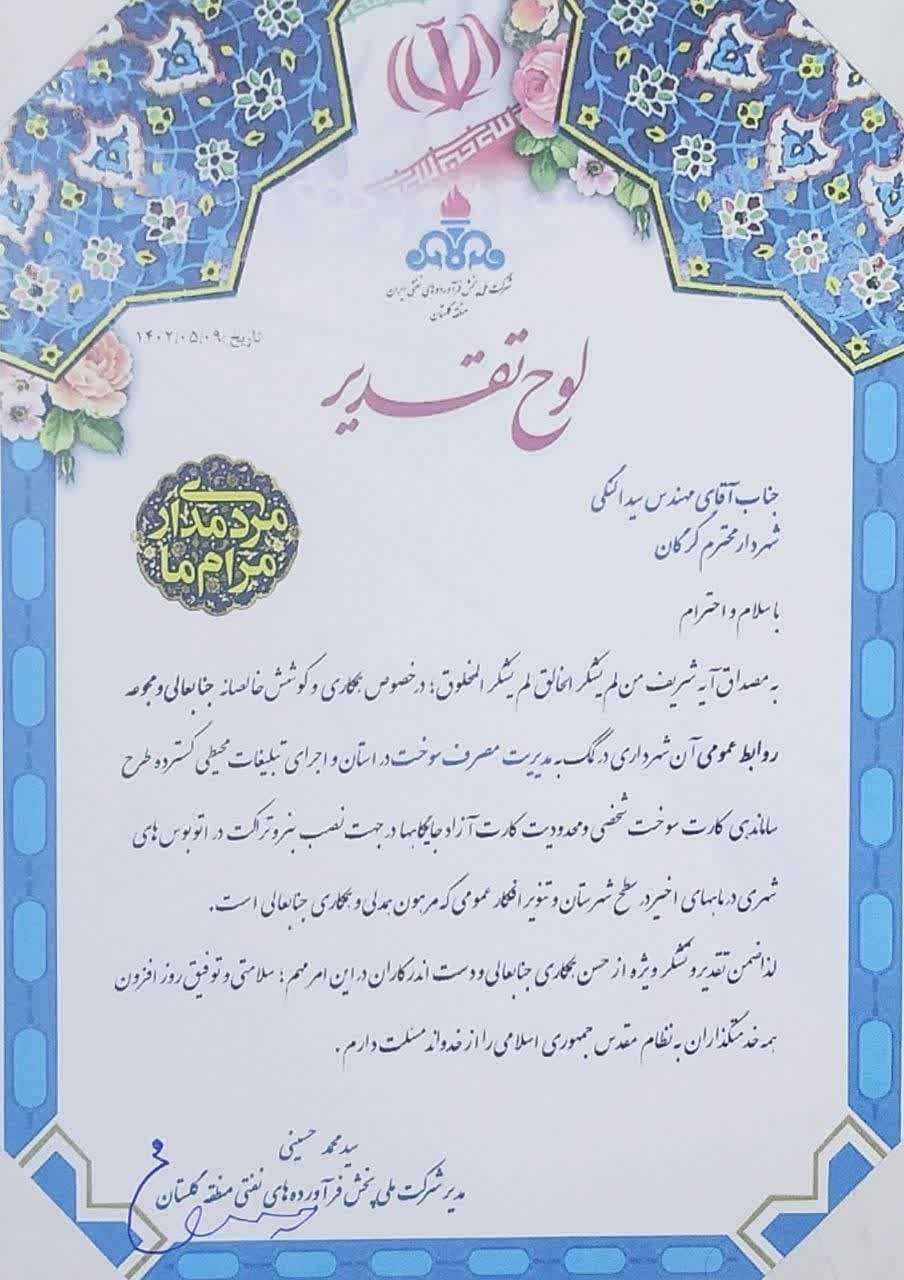 شرکت ملی پخش فرآورده های نفتی ایران
منطقه گلستان
تاریخ: ۱۴۰۲/۰۵/۰۹
لوح تقدیر
مردمداری
مرام ما
جناب آقای مهندس سید النگی
شهردار محترم گرگان
با سلام و احترام
به مصداق آیه شریف من لم یشکر الخالق لم یشکر المخلوق؛ درخصوص همکاری و کوشش خالصانه جنابعالی و مجموعه
روابط عمومی آن شهرداری در کمک به مدیریت مصرف سوخت در استان و اجرای تبلیغات محیطی گسترده طرح
ساماندهی کارت سوخت شخصی و محدودیت کارت آزاد جایگاهها در جهت نصب بنر و تراکت در اتوبوس های
شهری در ماههای اخیر در سطح شهرستان و تنویر افکار عمومی که مرهون همدلی و همکاری جنابعالی است.
لذا ضمن تقدیر و تشکر ویژه از حسن همکاری جنابعالی و دست اندرکاران در این امر مهم؛ سلامتی و توفیق روز افزون
همه خدمتگذاران به نظام مقدس جمهوری اسلامی را از خداوند مسئلت دارم.
سید محمد حسینی
مدیر شرکت ملی پخش فرآورده های نفتی منطقه گلستان